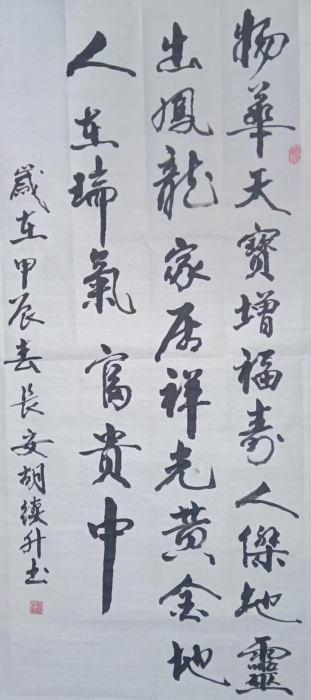 物華天寶增福壽人傑地靈
出鳳龍家居祥光黃金地
人在瑞氣富貴中
歲在甲辰春長安胡續升書